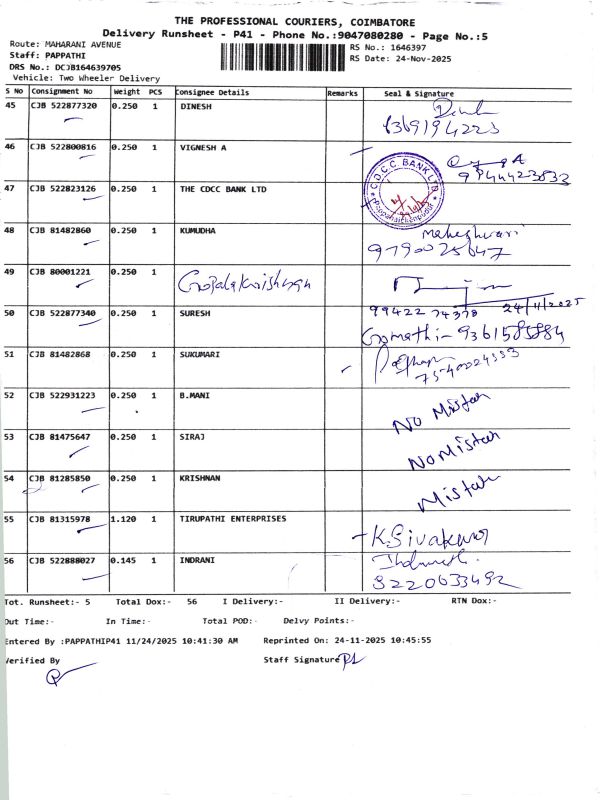 THE PROFESSIONAL COURIERS, COIMBATORE
Delivery Runsheet - P41 - Phone No.:9047080280 - Page No.:5
Route: MAHARANI AVENUE
RS No.: 1646397
Staff: PAPPATHI
RS Date: 24-Nov-2025
DRS No.: DCJB164639705
Vehicle: Two Wheeler Delivery
S No Consignment No Weight PCS Consignee Details Remarks Seal & Signature
45 CJB 522877320 0.250 1 DINESH
6369194223
46 CJB 522800816 0.250 1 VIGNESH A
47 CJB 522823126 0.250 1 THE CDCC BANK LTD
C.D.C.C. BANK LTD
48 CJB 81482860 0.250 1 KUMUDHA Maheshwari
9790025647
49 CJB 80001221 0.250 1 Gopalakrishnan
50 CJB 522877340 0.250 1 SURESH 99422 74378 24/11/2025
Gomathi - 9361585884
51 CJB 81482868 0.250 1 SUKUMARI
52 CJB 522931223 0.250 1 B.MANI No Mistah
53 CJB 81475647 0.250 1 SIRAJ No Mistah
54 CJB 81285850 0.250 1 KRISHNAN Mistah
55 CJB 81315978 1.120 1 TIRUPATHI ENTERPRISES K.Sivakumar
56 CJB 522888027 0.145 1 INDRANI
8220633492
Tot. Runsheet:- 5 Total Dox:- 56 I Delivery:- II Delivery:- RTN Dox:-
Out Time:- In Time:- Total POD:- Delvy Points:-
Entered By :PAPPATHIP41 11/24/2025 10:41:30 AM Reprinted On: 24-11-2025 10:45:55
Verified By Staff Signature